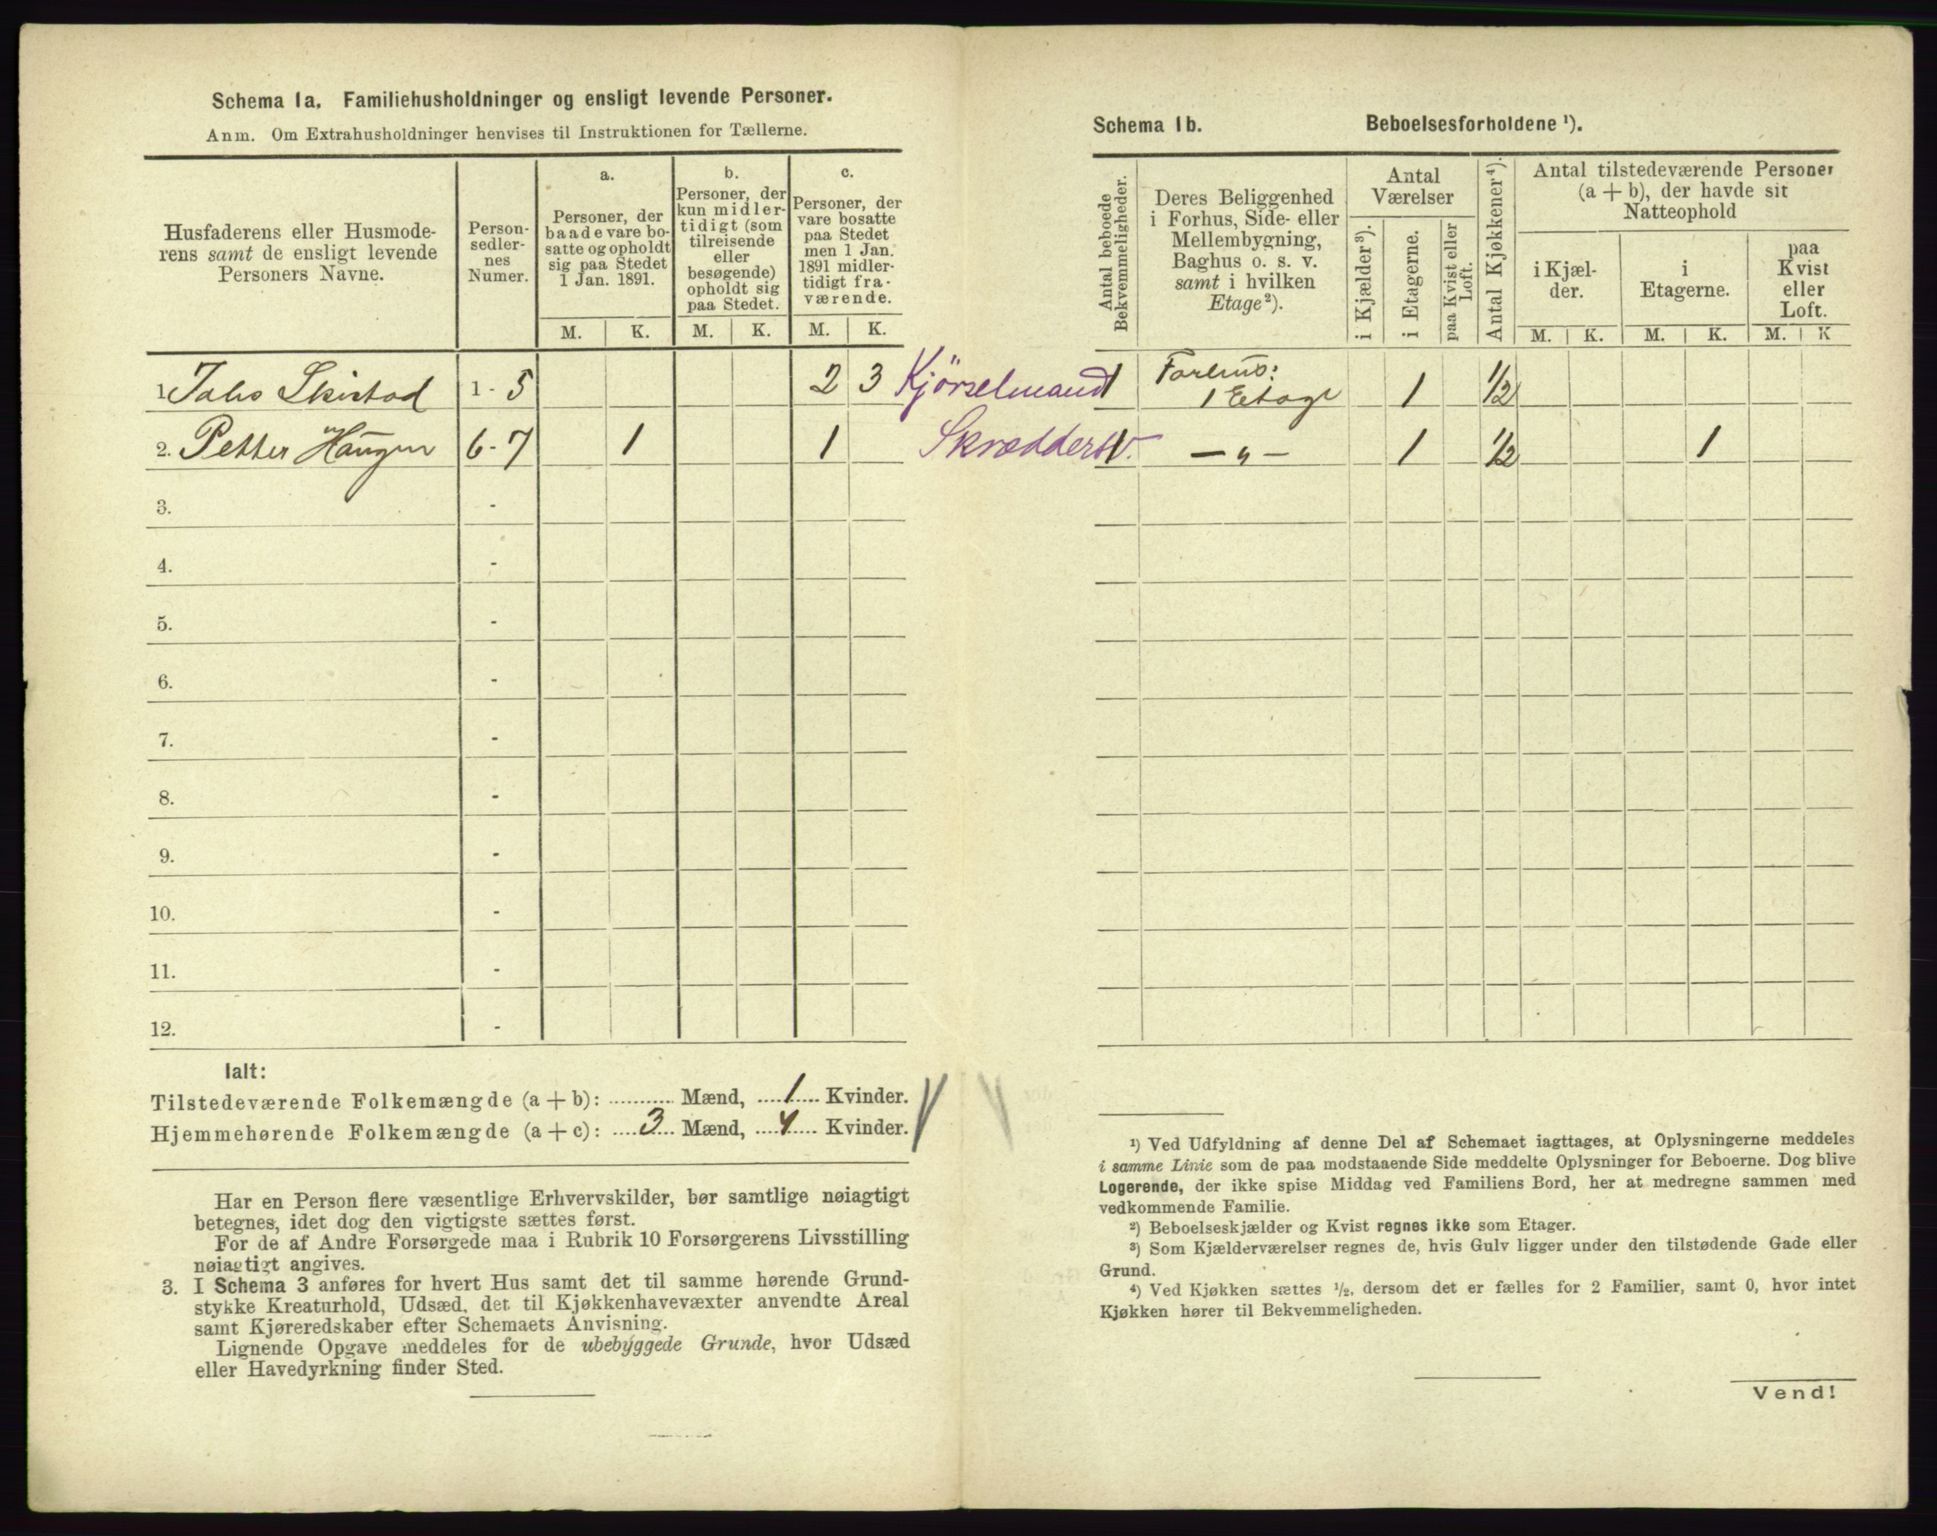 Schema 1a. Familiehusholdninger og ensligt levende Personer.
Anm. Om Extrahusholdninger henvises til Instruktionen for Tællerne.
Husfaderens eller Husmode-
rens samt de ensligt levende
Personers Navne.
Person-
sedler-
nes
Numer.
a.
Personer, der
baade vare bo-
satte og opholdt
sig paa Stedet
1 Jan. 1891.
b.
Personer, der
kun midler-
tidigt (som
tilreisende
eller
besøgende)
opholdt sig
paa Stedet.
c.
Personer, der
vare bosatte
paa Stedet
men 1 Jan.
1891 midler-
tidigt fra-
værende.
M. K. M. K. M. K.
1. Skistad 1 - 5 2 3 Kjörselmand
2. Petter Haugen 6 - 7 1 1 Skræddersv.
3. -
4. -
5. -
6. -
7. -
8. -
9. -
10. -
11. -
12. -
Ialt:
Tilstedeværende Folkemængde (a + b): ........... Mænd, 1 Kvinder.
Hjemmehørende Folkemængde (a + c): 3 Mænd, 4 Kvinder.
Har en Person flere væsentlige Erhvervskilder, bør samtlige nøiagtigt
betegnes, idet dog den vigtigste sættes først.
For de af Andre Forsørgede maa i Rubrik 10 Forsørgerens Livsstilling
nøiagtigt angives.
3. I Schema 3 anføres for hvert Hus samt det til samme hørende Grund-
stykke Kreaturhold, Udsæd, det til Kjøkkenhavevæxter anvendte Areal
samt Kjøreredskaber efter Schemaets Anvisning.
Lignende Opgave meddeles for de ubebyggede Grunde, hvor Udsæd
eller Havedyrkning finder Sted.
Schema 1b. Beboelsesforholdene ¹).
Antal beboede
Bekvemmeligheder.
Deres Beliggenhed
i Forhus, Side- eller
Mellembygning,
Baghus o. s. v.
samt i hvilken
Etage²).
Antal
Værelser
i Kjælder³).
i Etagerne.
paa Kvist eller
Loft.
Antal Kjøkkener⁴).
Antal tilstedeværende Personer
(a + b), der havde sit
Natteophold
i Kjæl-
der.
i
Etagerne.
paa
Kvist
eller
Loft.
M. K. M. K. M. K
1 Forhus:
1 Etage 1 ½
1 — „ — 1 ½ 1
¹) Ved Udfyldning af denne Del af Schemaet iagttages, at Oplysningerne meddeles
i samme Linie som de paa modstaaende Side meddelte Oplysninger for Beboerne. Dog blive
Logerende, der ikke spise Middag ved Familiens Bord, her at medregne sammen med
vedkommende Familie.
²) Beboelseskjælder og Kvist regnes ikke som Etager.
³) Som Kjælderværelser regnes de, hvis Gulv ligger under den tilstødende Gade eller
Grund.
⁴) Ved Kjøkken sættes ½, dersom det er fælles for 2 Familier, samt 0, hvor intet
Kjøkken hører til Bekvemmeligheden.
Vend!